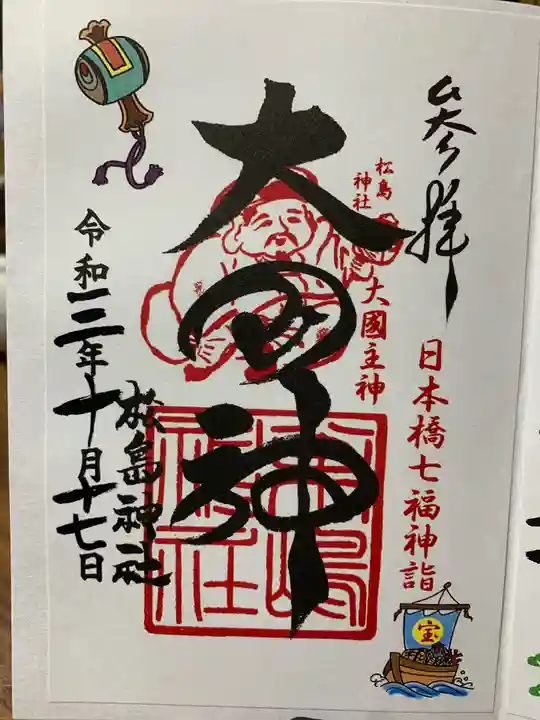 参拝
日本橋七福神詣
松島
神社
大國主神
大国神
松島
神社
松島神社
令和三年十月十七日
宝